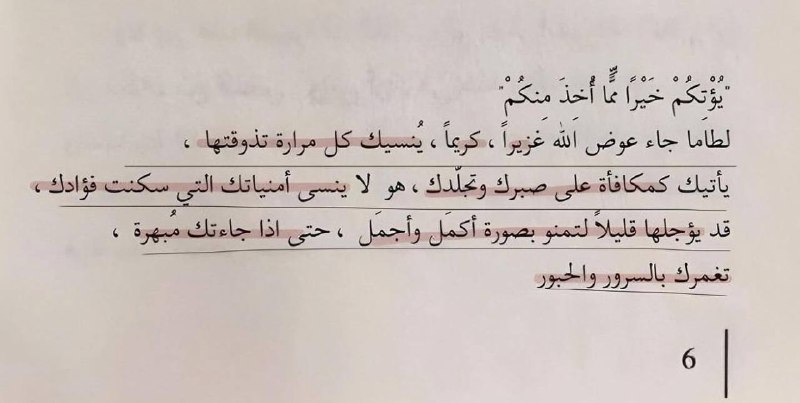 "يُؤْتِكُمْ خَيْرًا مِّمَّا أُخِذَ مِنكُمْ"
لطاما جاء عوض الله غزيراً ، كريماً ، يُنسيك كل مرارة تذوقتها ،
يأتيك كمكافأة على صبرك وتجلّدك ، هو لا ينسى أمنياتك التي سكنت فؤادك ،
قد يؤجلها قليلاً لتمنو بصورة أكمَل وأجمَل ، حتى اذا جاءتك مُبهرة ،
تغمرك بالسرور والحبور
6